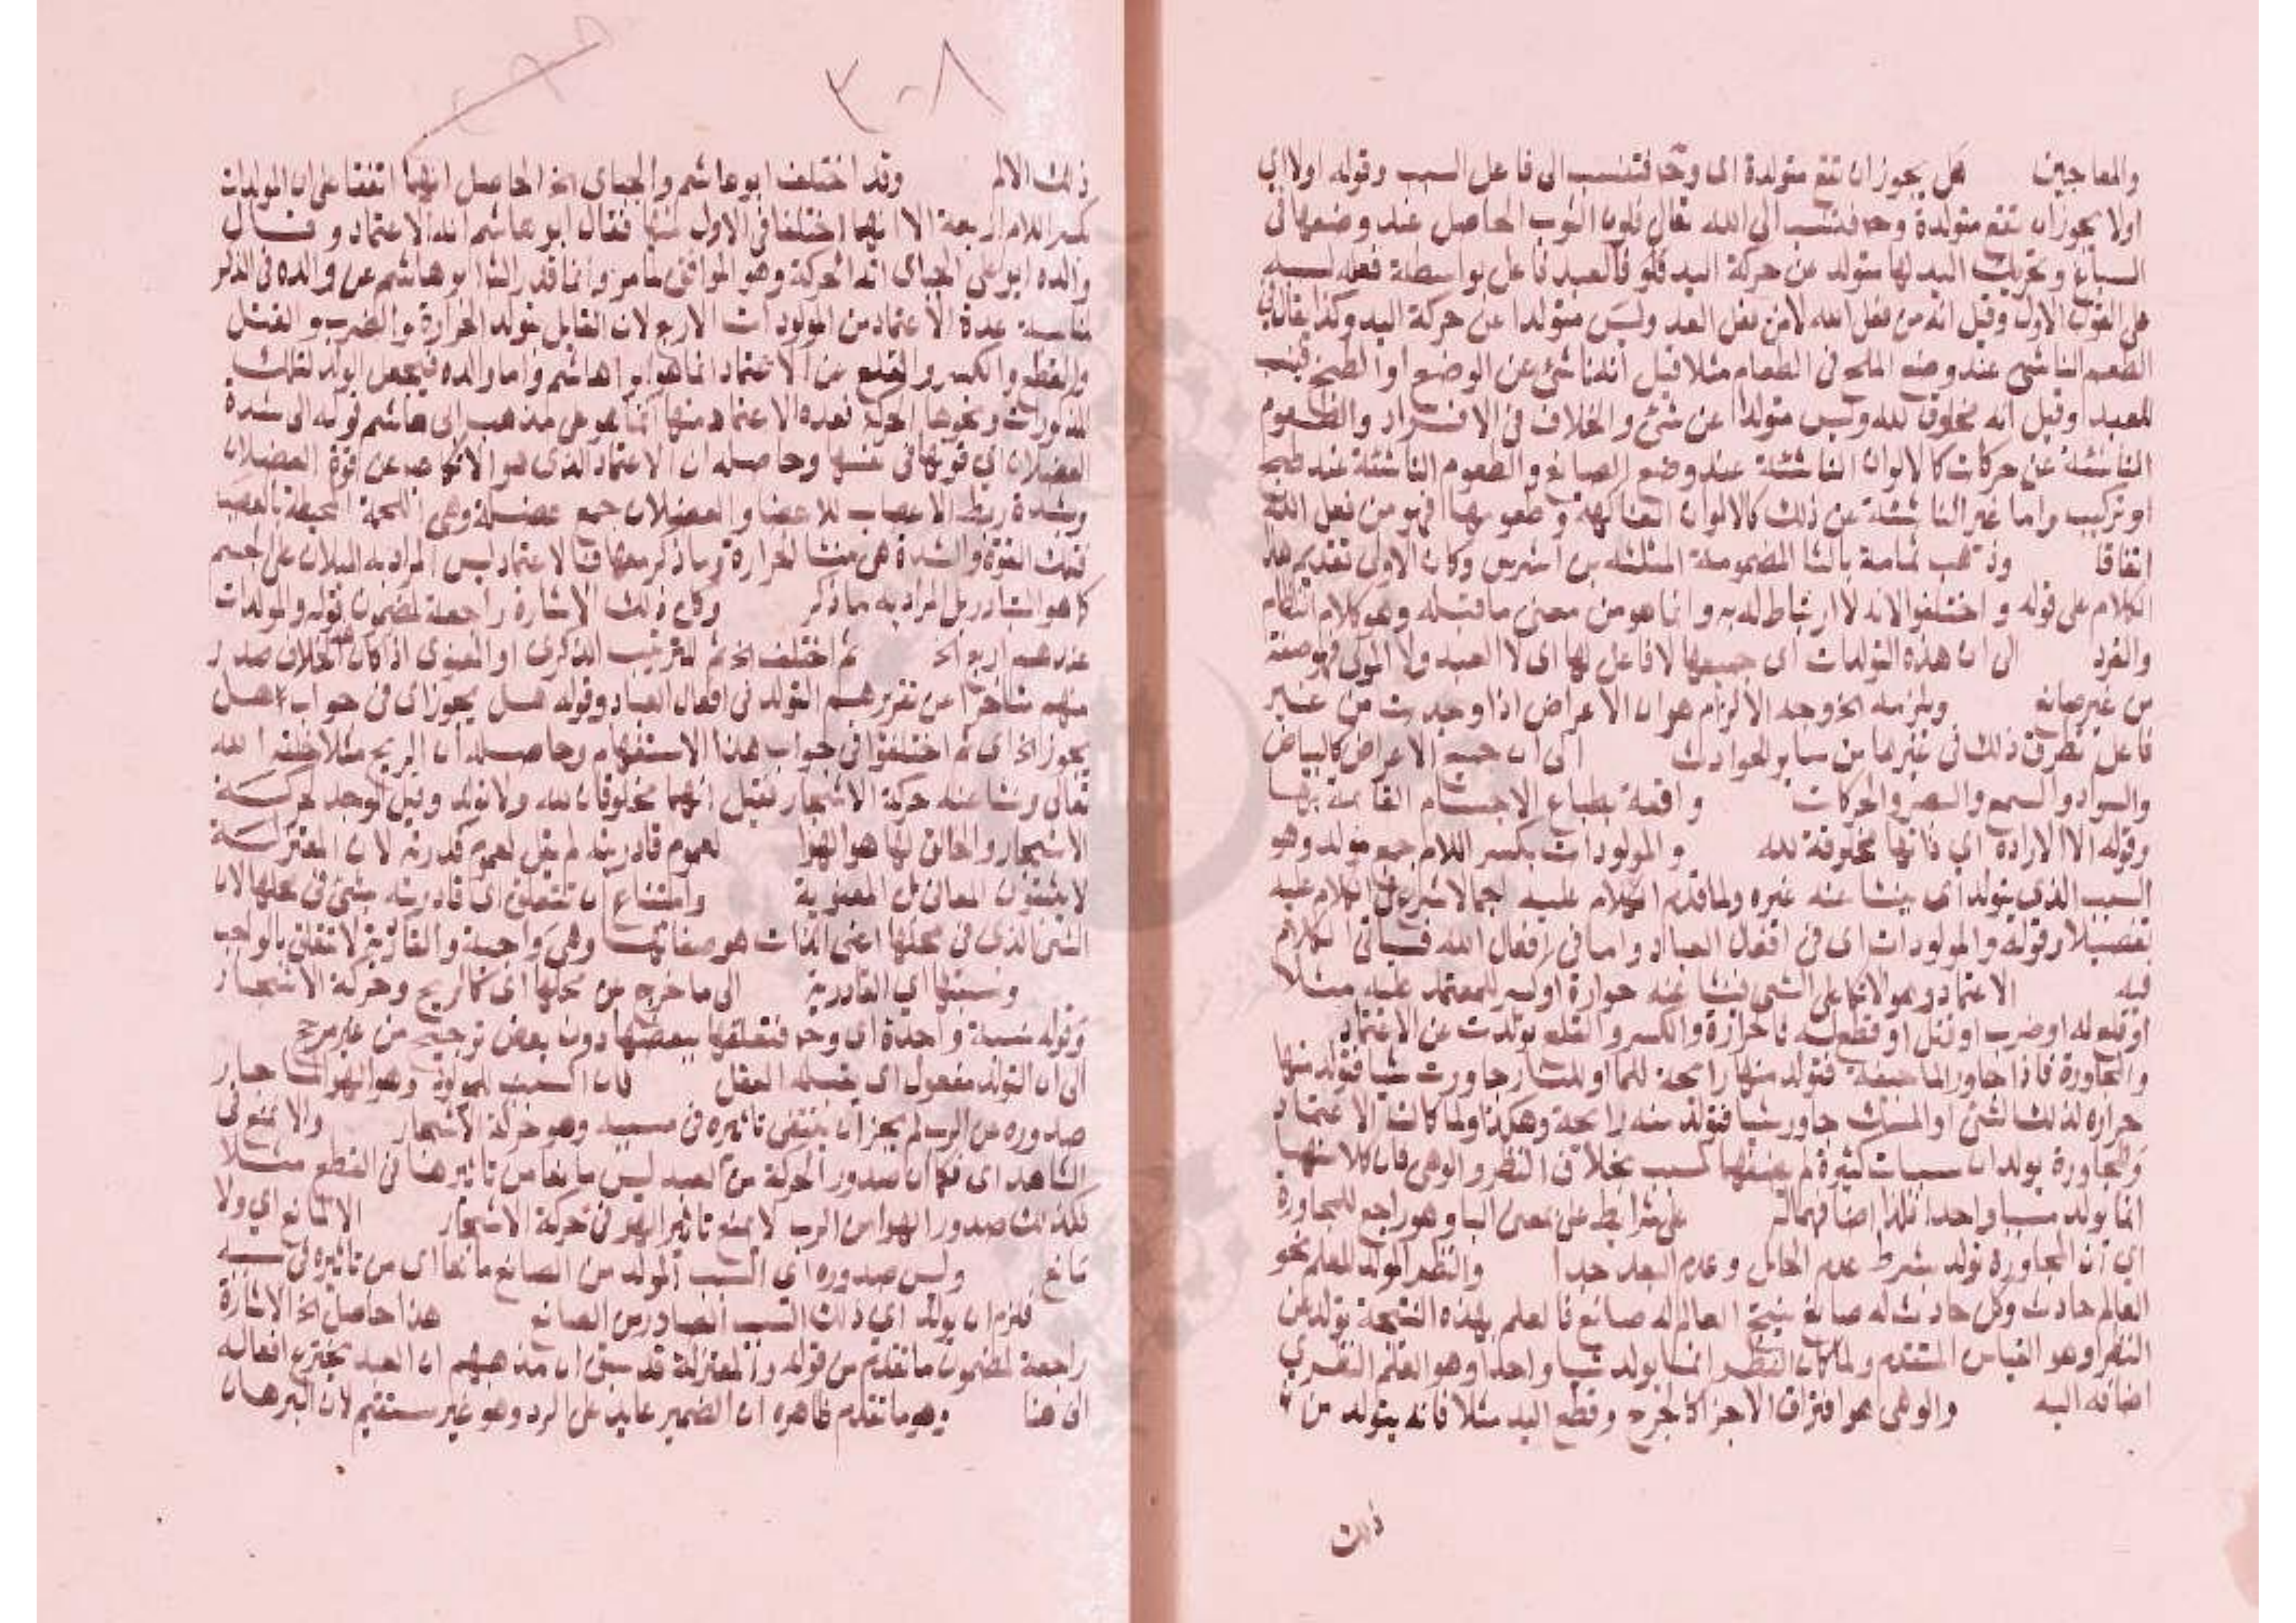 والمعاجين هل يجوز ان تقع متولدة اى وح فتنسب الى فاعل السبب وقوله اولا اي
اولا يجوز ان تقع متولدة وح فتنسب الى الله تعالى فلون الثوب الحاصل عند وضعها فى
السباغ وتحريك اليد لها متولد عن حركة اليد فالعبد فاعل بواسطة فعله لسببه
على القول الاول وقيل انه من فعل الله لا من فعل العبد وليس متولدا عن حركة اليد وكذا يقال فى
الطعم الناشى عند وضع الملح فى الطعام مثلا قيل انه ناشئ عن الوضع او الطبخ فينسب
للعبد وقيل انه مخلوق لله وليس متولدا عن شئ والخلاف فى الالوان والطعوم
الناشئة عن حركات كالالوان الناشئة عند وضع الصباغ والطعوم الناشئة عند طبخ
او تركيب واما غير الناشئة عن ذلك كالالوان الفاكهة وطعومها فهو من فعل الله
اتفاقا وذهب ثمامة بالثا المضمومة المثلثه بن اشرس وكان الاولى تقديم هذا
الكلام على قوله واختلفوا لانه لا ارتباط له به وانما هو من معنى ما قبله وهو كلام النظام
والفرد الى ان هذه التولدات اى جميعها لا فاعل لها اى لا العبد ولا المولى فهو صنعة
من غير صانع ويلزمه الخ وجه الالزام هو ان الاعراض اذا وجدت من غير
فاعل تطرق ذلك فى غيرها من ساير الحوادث الى ان جميع الاعراض كالبياض
والسواد والسمع والبصر والحركات واقعة بطباع الاجسام القائمة بها
وقوله الا الارادة اي فانها مخلوقة لله والمولودات بكسر اللام جمع مولد وهو
السبب الذى يتولد اى ينشا عنه غيره ولما قدم الكلام عليه اجمالا شرع فى الكلام عليه
تفصيلا وقوله والمولودات اى فى افعال العباد واما فى افعال الله فسياتى الكلام
فيه الاعتماد وهو الاتكا على الشى فينشا عنه حرارة او كسر للمعتمد عليه مثلا
او قلع له او ضرب او قتل او قطع له فالحرارة والكسر والقلع تولدت عن الاعتماد
والمجاورة فاذا جاور الما جيفة فتولد منها رايحة للما او النار جاورت شيا فتولد منها
حرارة لذلك الشئ او المسك جاور شيا فتولد منه رايحة وهكذا ولما كانت الاعتماد
والمجاورة يولدان مسببات كثيرة لم يضفها لسبب بخلاف النظر والوهى فان كلا منهما
انما يولد مسببا واحدا فلذا اضافهما له على شرايط على بمعنى البا وهو راجع للمجاورة
اي ان المجاورة تولد بشرط عدم الحايل وعدم البعد جدا والنظر المولد للعلم نحو
العالم حادث وكل حادث له صانع ينتج العالم له صانع فالعلم بهذه النتيجة تولد عن
النظر وهو القياس المتقدم ولما كان النظر انما يولد شيا واحدا وهو العلم النظرى
اضافه اليه والوهى هو افتراق الاجزا كالجرح وقطع اليد مثلا فانه يتولد من
ذلك
٣٠٨
ذلك الالم وقد اختلف ابو هاشم والجباى الخ الحاصل انهما اتفقا على ان المولدات
بكسر اللام اربعة الا انهما اختلفا فى الاول منها فقال ابو هاشم انه الاعتماد وقال
والده ابو على الجباى انه الحركة وهو الموافق لما مر وانما قدر الشا ابو هاشم عن والده فى الذكر
مناسبة عده الاعتماد من المولودات الاربع لان القايل بتولد الحرارة والضرب والقتل
والقطع والكسر والقلع عن الاعتماد انما هو ابو هاشم واما والده فيجعل المولد لتلك
المذكورات ونحوها الحركة فعده الاعتماد منها انما هو على مذهب ابى هاشم قوله الى شدة
العضلات اي قوتها فى نفسها وحاصله ان الاعتماد الذى هو الاتكا عن قوة العضلات
وشدة ربط الاعصاب للاعضا والعضلات جمع عضلة وهى اللحمة المحيطة بالعصب
فتلك القوة والشدة هى منشا الحرارة وما ذكر معها فالاعتماد ليس المراد به الميلان على الجسم
كما هو المتبادر بل المراد به ما ذكر وكان ذلك الاشارة راجعة لمضمون قوله والمولدات
عندهم اربع الخ ثم اختلف الخ ثم للترتيب الذكرى او المعنوى اذا كان الخلاف صدر
منهم متاخرا عن تقريرهم التولد فى افعال العباد وقوله هل يجوز اى فى جواب هل
يجوز الخ اى ثم اختلفوا فى جواب هذا الاستفهام وحاصله ان الريح مثلا خلقه الله
تعالى ونشا عنه حركة الاشجار فقيل انهما مخلوقان لله ولا تولد وقيل الموجد لحركة
الاشجار والخالق لها هو الهوا لعموم قادريته لم يقل لعموم قدرته لان المعتزلة
لا يثبتون المعانى بل المعنوية وامتناع ان تتعلق اى قادريته بشئ فى محلها لان
الشئ الذى فى محلها اعنى الذات هو صفاتها وهى واجبة والقادرية لا تتعلق بالواجب
ونسبتها اي القادرية الى ما خرج عن محلها اى كالريح وحركة الاشجار
وقوله نسبة واحدة اى وح فتعلقها ببعضها دون بعض ترجيح من غير مرجح
الى ان التولد مفعول اى يقبله العقل فان السبب المولد وهو الهوا جاز
صدوره عن الرب لم يجز ان ينتفى تاثيره فى مسببه وهو حركة الاشجار والا منع فى
الشاهد اى فكما ان صدور الحركة من العبد ليس مانعا من تاثيرها فى القطع مثلا
فكذلك صدور الهوا من الرب لا يمنع تاثير الهوا فى حركة الاشجار الا لمانع اي ولا
مانع وليس صدوره اى السبب المولد من الصانع مانعا اى من تاثيره فى مسببه
فلزم ان يولد اى ذلك السبب الصادر من الصانع هذا حاصل الخ الاشارة
راجعة لمضمون ما تقدم من قوله والمعتزلة قد سبق ان مذهبهم ان العبد يخترع افعاله
الى هنا وهو ما تقدم ظاهره ان الضمير عايد على الرد وهو غير مستقيم لان البرهان